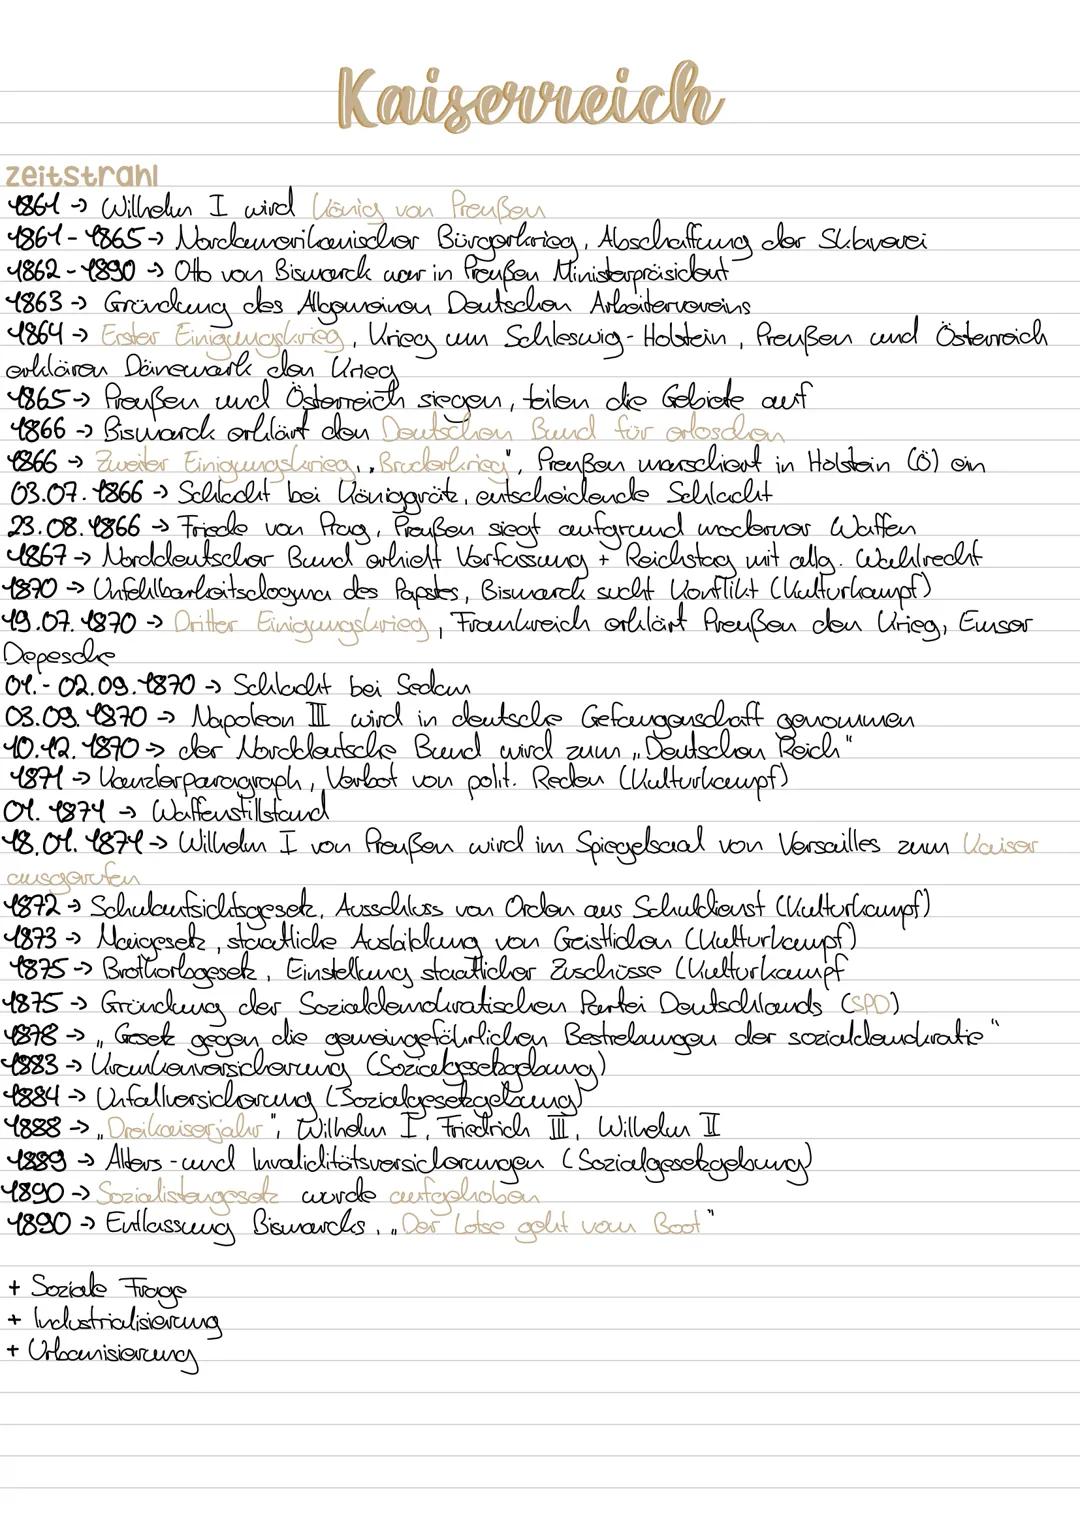 Kaiserreich
zeitstrahl
1861 → Wilhelm I wird König von Preußen
1861-1865 → Nordamerikanischer Bürgerkrieg, Abschaffung der Sklaverei
1862-1890 → Otto von Bismarck war in Preußen Ministerpräsident
1863 → Gründung des Allgemeinen Deutschen Arbeitervereins
1864 → Erster Einigungskrieg, Krieg um Schleswig-Holstein, Preußen und Österreich
erklären Dänemark den Krieg
1865 → Preußen und Österreich siegen, teilen die Gebiete auf
1866 → Bismarck erklärt den Deutschen Bund für erloschen
1866 → Zweiter Einigungskrieg, „Bruderkrieg", Preußen marschiert in Holstein (Ö) ein
03.07.1866 → Schlacht bei Königgrätz, entscheidende Schlacht
23.08.1866 → Friede von Prag, Preußen siegt aufgrund moderner Waffen
1867 → Norddeutscher Bund erhielt Verfassung + Reichstag mit allg. Wahlrecht
1870 → Unfehlbarkeitsdogma des Papstes, Bismarck sucht Konflikt (Kulturkampf)
19.07.1870 → Dritter Einigungskrieg, Frankreich erklärt Preußen den Krieg, Emser
Depesche
01.-02.09.1870 → Schlacht bei Sedan
03.09.1870 → Napoleon III wird in deutsche Gefangenschaft genommen
10.12.1870 → der Norddeutsche Bund wird zum „Deutschen Reich"
1871 → Kanzlerparagraph, Verbot von polit. Reden (Kulturkampf)
01.1871 → Waffenstillstand
18.01.1871 → Wilhelm I von Preußen wird im Spiegelsaal von Versailles zum Kaiser
ausgerufen
1872 → Schulaufsichtsgesetz, Ausschluss von Orden aus Schuldienst (Kulturkampf)
1873 → Maigesetz, staatliche Ausbildung von Geistlichen (Kulturkampf)
1875 → Brotkorbgesetz, Einstellung staatlicher Zuschüsse (Kulturkampf
1875 → Gründung der Sozialdemokratischen Partei Deutschlands (SPD)
1878 → „Gesetz gegen die gemeingefährlichen Bestrebungen der sozialdemokratie"
1883 → Krankenversicherung (Sozialgesetzgebung)
1884 → Unfallversicherung (Sozialgesetzgebung)
1888 → „Dreikaiserjahr", Wilhelm I, Friedrich III, Wilhelm II
1889 → Alters-und Invaliditätsversicherungen (Sozialgesetzgebung)
1890 → Sozialistengesetz wurde aufgehoben
1890 → Entlassung Bismarcks, „Der Lotse geht vom Boot"
+ Soziale Frage
+ Industrialisierung
+ Urbanisierung